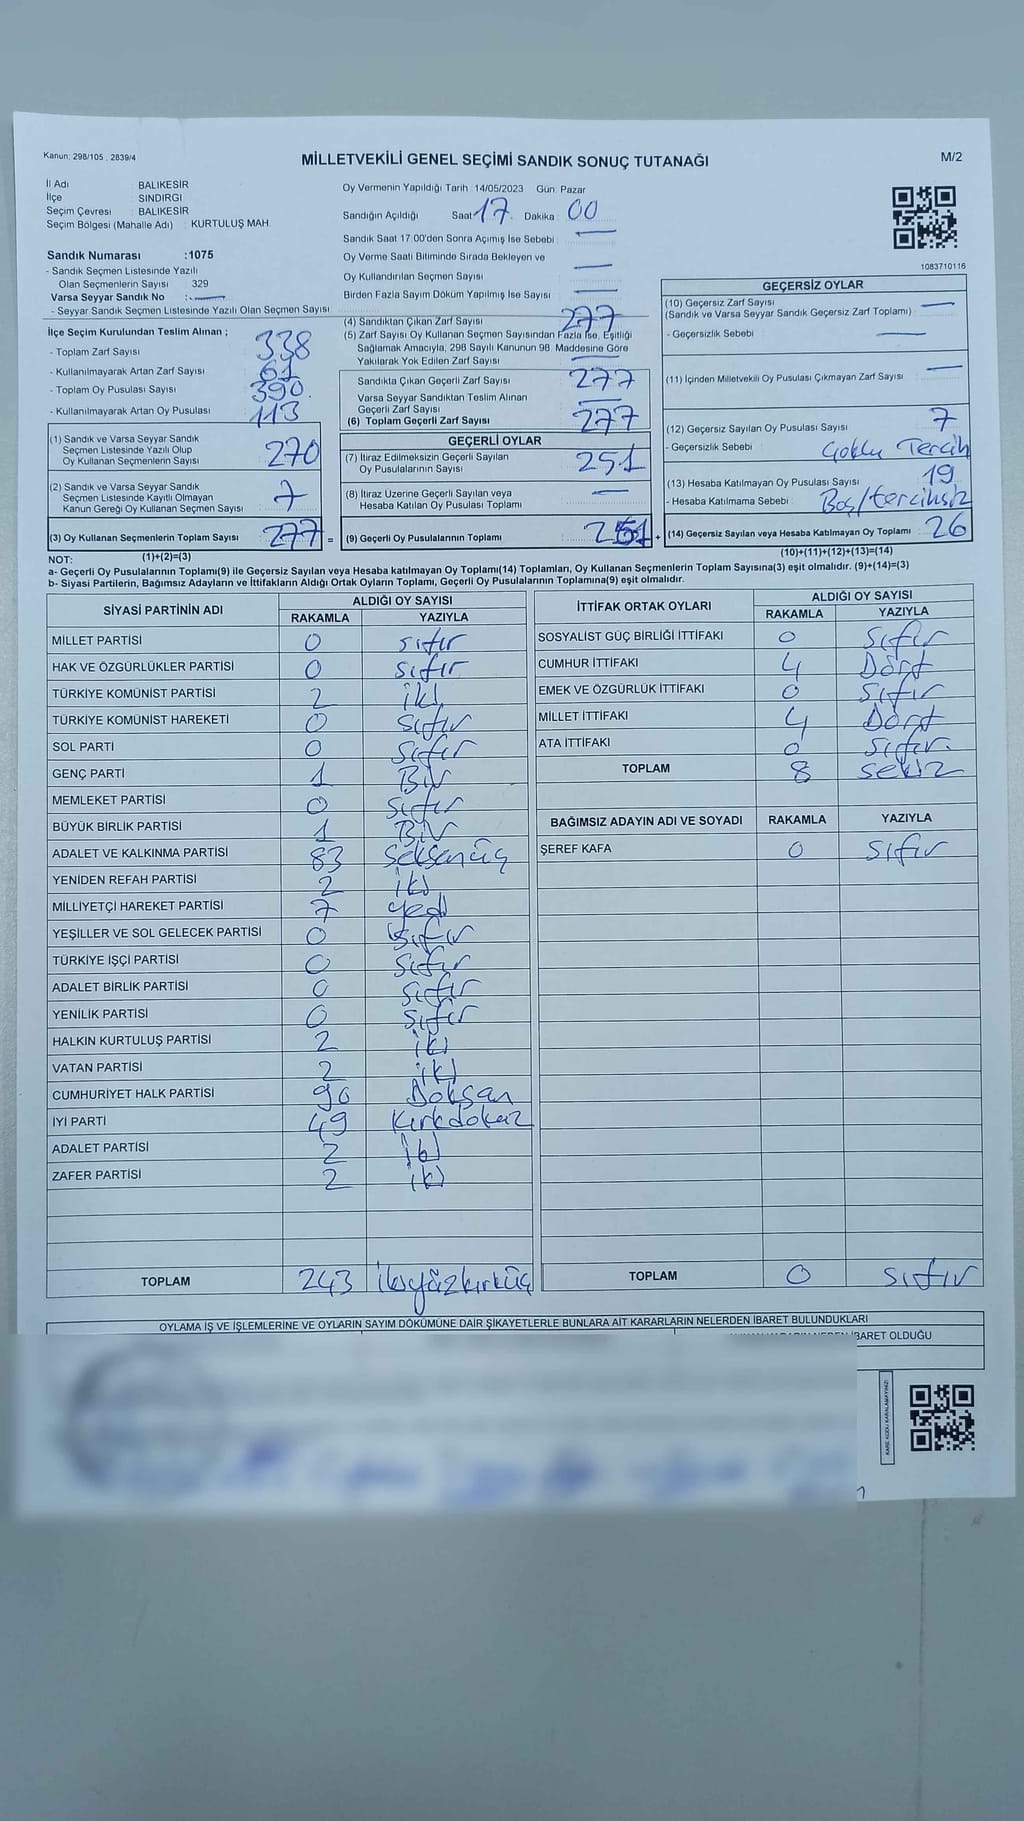 Kanun: 298/105 , 2839/4
MİLLETVEKİLİ GENEL SEÇİMİ SANDIK SONUÇ TUTANAĞI
M/2
İl Adı BALIKESİR
İlçe SINDIRGI
Seçim Çevresi : BALIKESİR
Seçim Bölgesi (Mahalle Adı) : KURTULUŞ MAH.
Sandık Numarası :1075
- Sandık Seçmen Listesinde Yazılı
Olan Seçmenlerin Sayısı 329
Varsa Seyyar Sandık No :
- Seyyar Sandık Seçmen Listesinde Yazılı Olan Seçmen Sayısı
Oy Vermenin Yapıldığı Tarih :14/05/2023 Gün: Pazar
Sandığın Açıldığı Saat 17 Dakika : 00
Sandık Saat 17:00'den Sonra Açımış İse Sebebi
Oy Verme Saati Bitiminde Sırada Bekleyen ve
Oy Kullandırılan Seçmen Sayısı
Birden Fazla Sayım Döküm Yapılmış İse Sayısı
1083710116
İlçe Seçim Kurulundan Teslim Alınan ;
- Toplam Zarf Sayısı 338
- Kullanılmayarak Artan Zarf Sayısı 61
- Toplam Oy Pusulası Sayısı 390
- Kullanılmayarak Artan Oy Pusulası 113
(1) Sandık ve Varsa Seyyar Sandık
Seçmen Listesinde Yazılı Olup
Oy Kullanan Seçmenlerin Sayısı 270
(2) Sandık ve Varsa Seyyar Sandık
Seçmen Listesinde Kayıtlı Olmayan
Kanun Gereği Oy Kullanan Seçmen Sayısı 7
(3) Oy Kullanan Seçmenlerin Toplam Sayısı 277 =
(4) Sandıktan Çıkan Zarf Sayısı 277
(5) Zarf Sayısı Oy Kullanan Seçmen Sayısından Fazla İse, Eşitliği
Sağlamak Amacıyla, 298 Sayılı Kanunun 98. Maddesine Göre
Yakılarak Yok Edilen Zarf Sayısı
Sandıkta Çıkan Geçerli Zarf Sayısı 277
Varsa Seyyar Sandıktan Teslim Alınan
Geçerli Zarf Sayısı
(6) Toplam Geçerli Zarf Sayısı 277
GEÇERLİ OYLAR
(7) İtiraz Edilmeksizin Geçerli Sayılan
Oy Pusulalarının Sayısı 251
(8) İtiraz Üzerine Geçerli Sayılan veya
Hesaba Katılan Oy Pusulası Toplamı
(9) Geçerli Oy Pusulalarının Toplamı 251 +
GEÇERSİZ OYLAR
(10) Geçersiz Zarf Sayısı
(Sandık ve Varsa Seyyar Sandık Geçersiz Zarf Toplamı)
- Geçersizlik Sebebi
(11) İçinden Milletvekili Oy Pusulası Çıkmayan Zarf Sayısı
(12) Geçersiz Sayılan Oy Pusulası Sayısı 7
- Geçersizlik Sebebi : Çoklu Tercih
(13) Hesaba Katılmayan Oy Pusulası Sayısı 19
- Hesaba Katılmama Sebebi : Boş/tercihsiz
(14) Geçersiz Sayılan veya Hesaba Katılmayan Oy Toplamı 26
NOT: (1)+(2)=(3) (10)+(11)+(12)+(13)=(14)
a- Geçerli Oy Pusulalarının Toplamı(9) ile Geçersiz Sayılan veya Hesaba katılmayan Oy Toplamı(14) Toplamları, Oy Kullanan Seçmenlerin Toplam Sayısına(3) eşit olmalıdır. (9)+(14)=(3)
b- Siyasi Partilerin, Bağımsız Adayların ve İttifakların Aldığı Ortak Oyların Toplamı, Geçerli Oy Pusulalarının Toplamına(9) eşit olmalıdır.
SİYASİ PARTİNİN ADI ALDIĞI OY SAYISI
RAKAMLA YAZIYLA
MİLLET PARTİSİ 0 sıfır
HAK VE ÖZGÜRLÜKLER PARTİSİ 0 sıfır
TÜRKİYE KOMÜNİST PARTİSİ 2 iki
TÜRKİYE KOMÜNİST HAREKETİ 0 sıfır
SOL PARTİ 0 sıfır
GENÇ PARTİ 1 Bir
MEMLEKET PARTİSİ 0 sıfır
BÜYÜK BİRLİK PARTİSİ 1 Bir
ADALET VE KALKINMA PARTİSİ 83 Seksenüç
YENİDEN REFAH PARTİSİ 2 iki
MİLLİYETÇİ HAREKET PARTİSİ 7 yedi
YEŞİLLER VE SOL GELECEK PARTİSİ 0 sıfır
TÜRKİYE İŞÇİ PARTİSİ 0 sıfır
ADALET BİRLİK PARTİSİ 0 sıfır
YENİLİK PARTİSİ 0 sıfır
HALKIN KURTULUŞ PARTİSİ 2 iki
VATAN PARTİSİ 2 iki
CUMHURİYET HALK PARTİSİ 90 Doksan
İYİ PARTİ 49 Kırkdokuz
ADALET PARTİSİ 2 iki
ZAFER PARTİSİ 2 iki
TOPLAM 243 ikiyüzkırküç
İTTİFAK ORTAK OYLARI ALDIĞI OY SAYISI
RAKAMLA YAZIYLA
SOSYALİST GÜÇ BİRLİĞİ İTTİFAKI 0 Sıfır
CUMHUR İTTİFAKI 4 Dört
EMEK VE ÖZGÜRLÜK İTTİFAKI 0 Sıfır
MİLLET İTTİFAKI 4 Dört
ATA İTTİFAKI 0 Sıfır
TOPLAM 8 sekiz
BAĞIMSIZ ADAYIN ADI VE SOYADI RAKAMLA YAZIYLA
ŞEREF KAFA 0 sıfır
TOPLAM 0 sıfır
OYLAMA İŞ VE İŞLEMLERİNE VE OYLARIN SAYIM DÖKÜMÜNE DAİR ŞİKAYETLERLE BUNLARA AİT KARARLARIN NELERDEN İBARET BULUNDUKLARI
İBARET OLDUĞU
KARE KODU KARALAMAYINIZ!